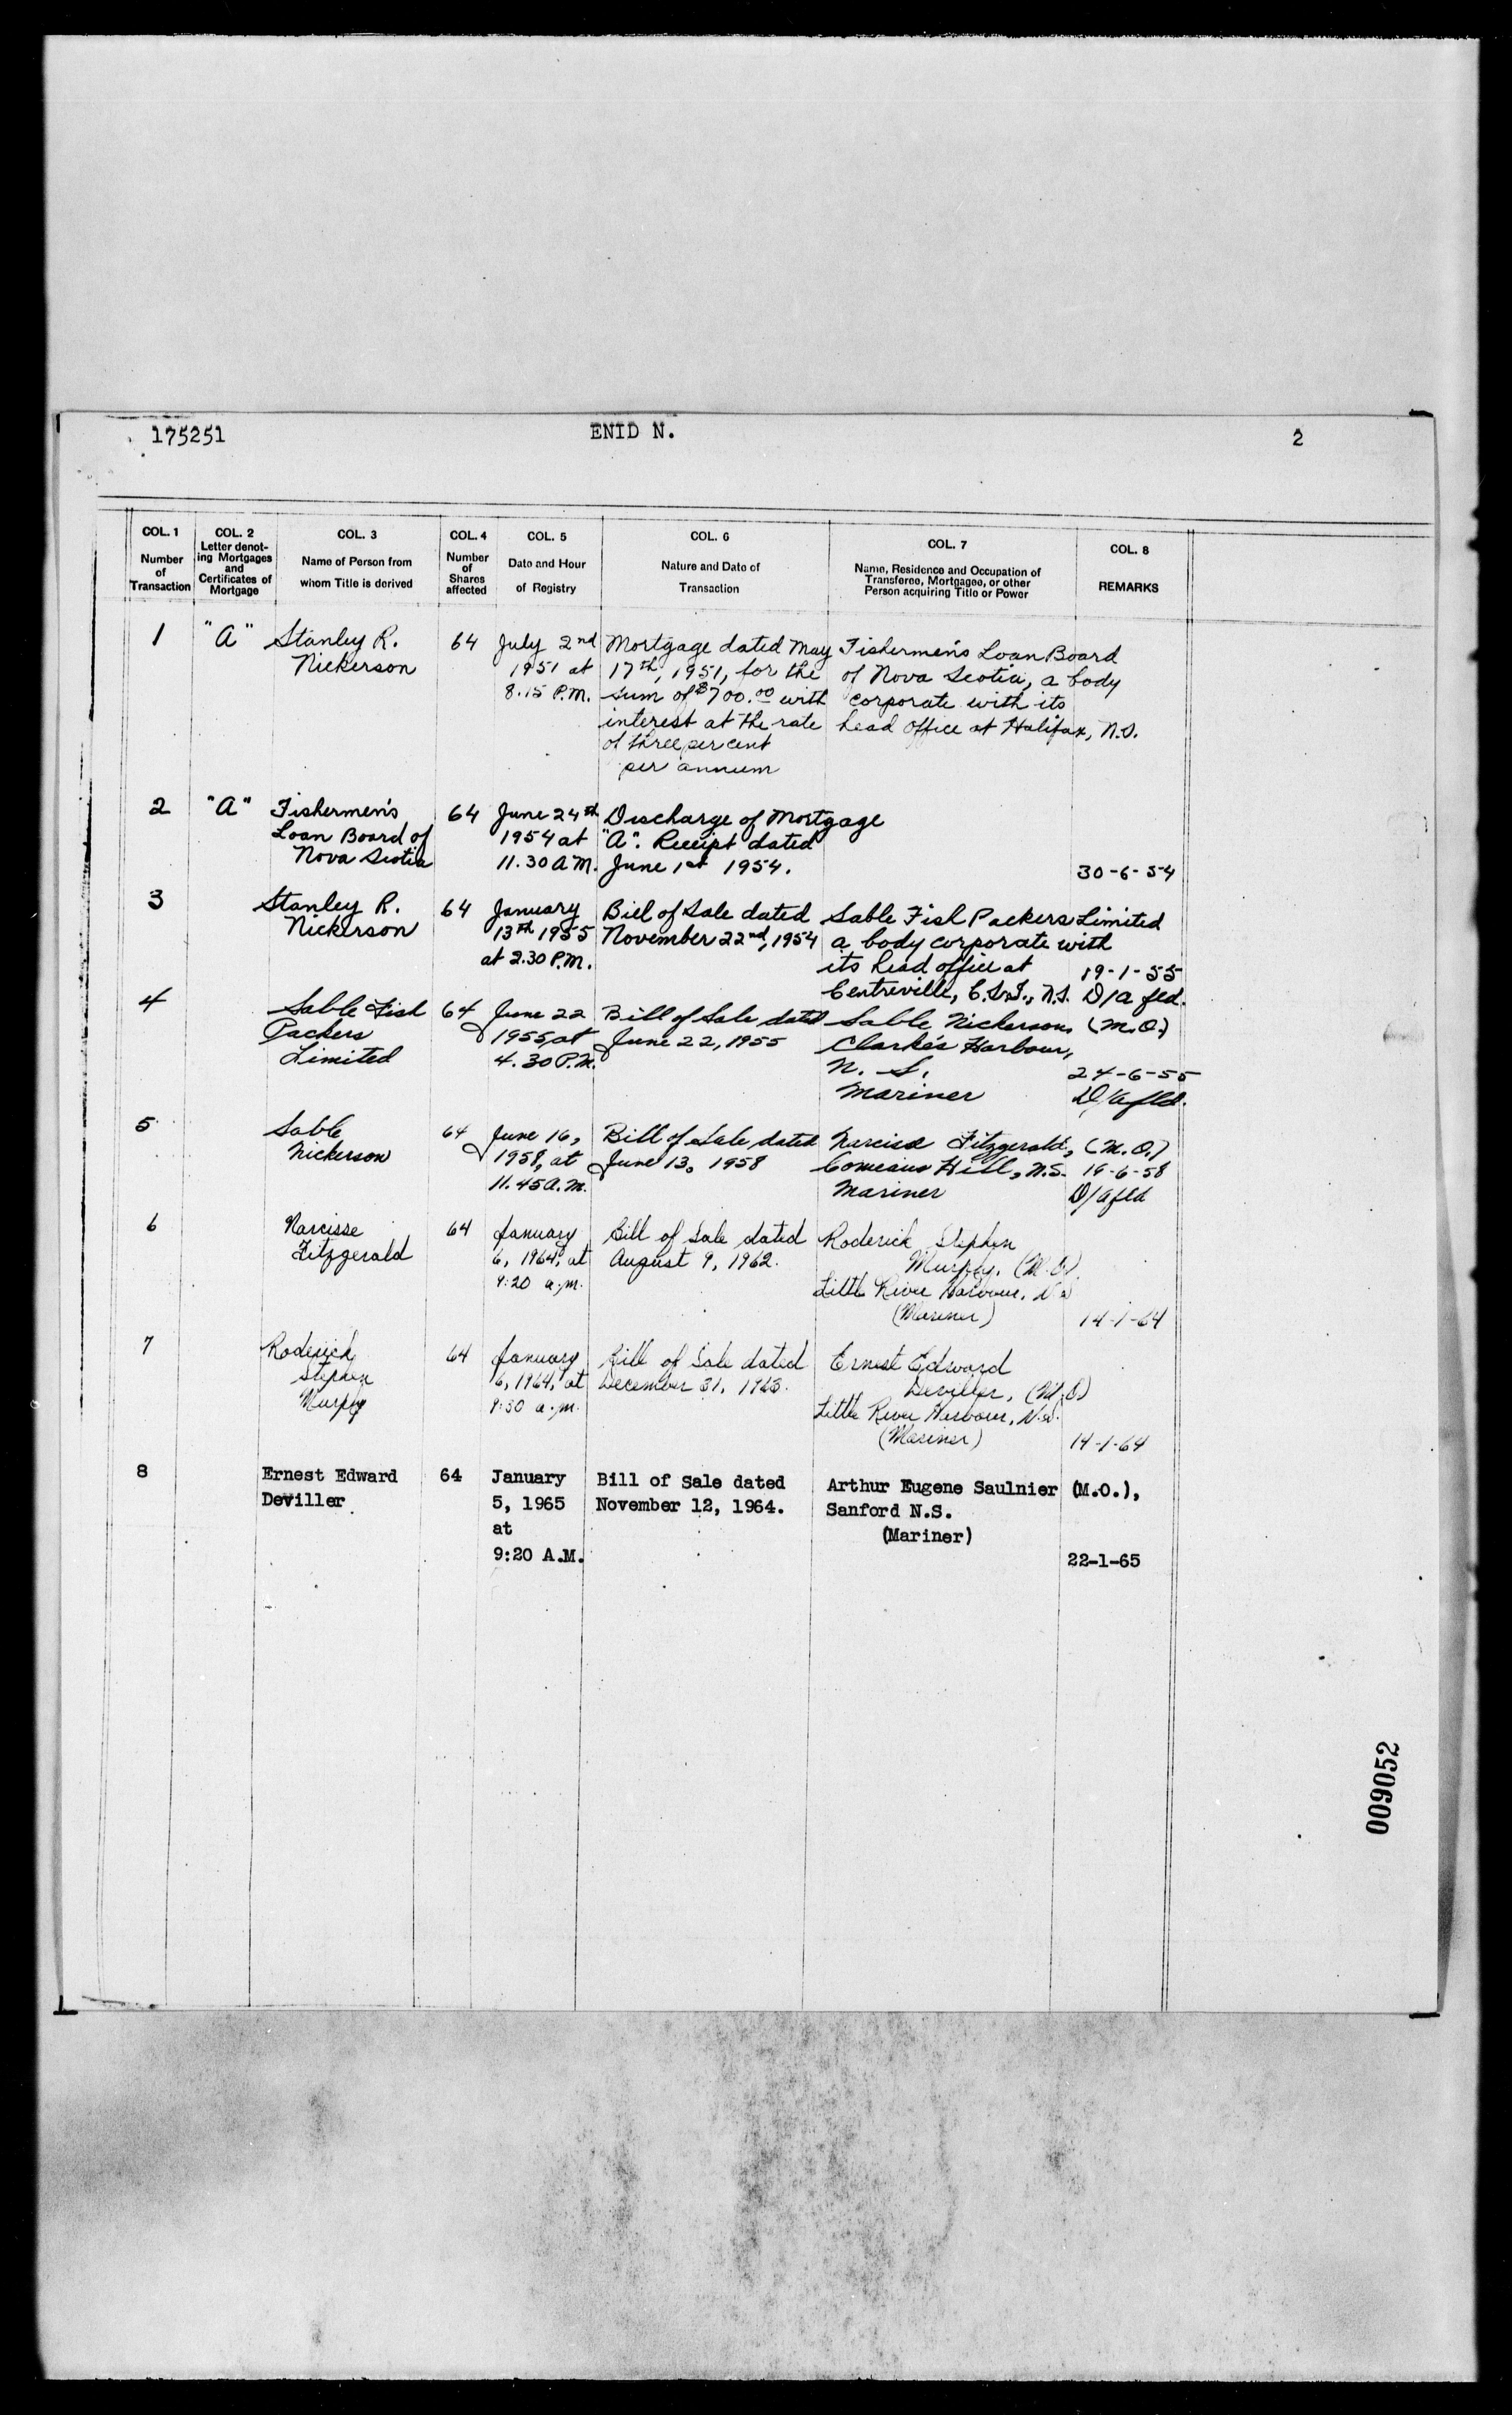 175251 ENID N. 2
COL. 1 COL. 2 COL. 3 COL. 4 COL. 5 COL. 6 COL. 7 COL. 8
Number of Transaction
Letter denoting Mortgages and Certificates of Mortgage
Name of Person from whom Title is derived
Number of Shares affected
Date and Hour of Registry
Nature and Date of Transaction
Name, Residence and Occupation of Transferee, Mortgagee, or other Person acquiring Title or Power
REMARKS
1 "A" Stanley R. 64 July 2nd Mortgage dated May Fishermen's Loan Board
Nickerson 1951 at 17th, 1951, for the of Nova Scotia, a body
8.15 P.M. sum of $700.00 with corporate with its
interest at the rate head office at Halifax, N.S.
of three per cent
per annum
2 "A" Fishermen's 64 June 24th Discharge of Mortgage
Loan Board of 1954 at "A". Receipt dated
Nova Scotia 11.30 A.M. June 1st 1954. 30-6-54
3 Stanley R. 64 January Bill of Sale dated Sable Fish Packers Limited
Nickerson 13th 1955 November 22nd, 1954 a body corporate with
at 2.30 P.M. its head office at 19-1-55
Centreville, C.S.I., N.S. D/a fld.
4 Sable Fish 64 June 22 Bill of Sale dated Sable Nickerson, (M.O.)
Packers 1955, at June 22, 1955 Clarke's Harbour,
Limited 4.30 P.M. N. S. 24-6-55
Mariner D/a fld.
5 Sable 64 June 16, Bill of Sale dated Narcisse Fitzgerald, (M.O.)
Nickerson 1958, at June 13, 1958 Comeaus Hill, N.S. 19-6-58
11.45 A.M. Mariner D/a fld
6 Narcisse 64 January Bill of Sale dated Roderick Stephen
Fitzgerald 6, 1964, at August 9, 1962. Murphy, (M.O.)
9:20 a.m. Little River Harbour, N.S.
(Mariner) 14-1-64
7 Roderick 64 January Bill of Sale dated Ernest Edward
Stephen 6, 1964, at December 31, 1963. Deviller, (M.O.)
Murphy 9:30 a.m. Little River Harbour, N.S.
(Mariner) 14-1-64
8 Ernest Edward 64 January Bill of Sale dated Arthur Eugene Saulnier (M.O.),
Deviller 5, 1965 November 12, 1964. Sanford N.S.
at (Mariner)
9:20 A.M. 22-1-65
009052